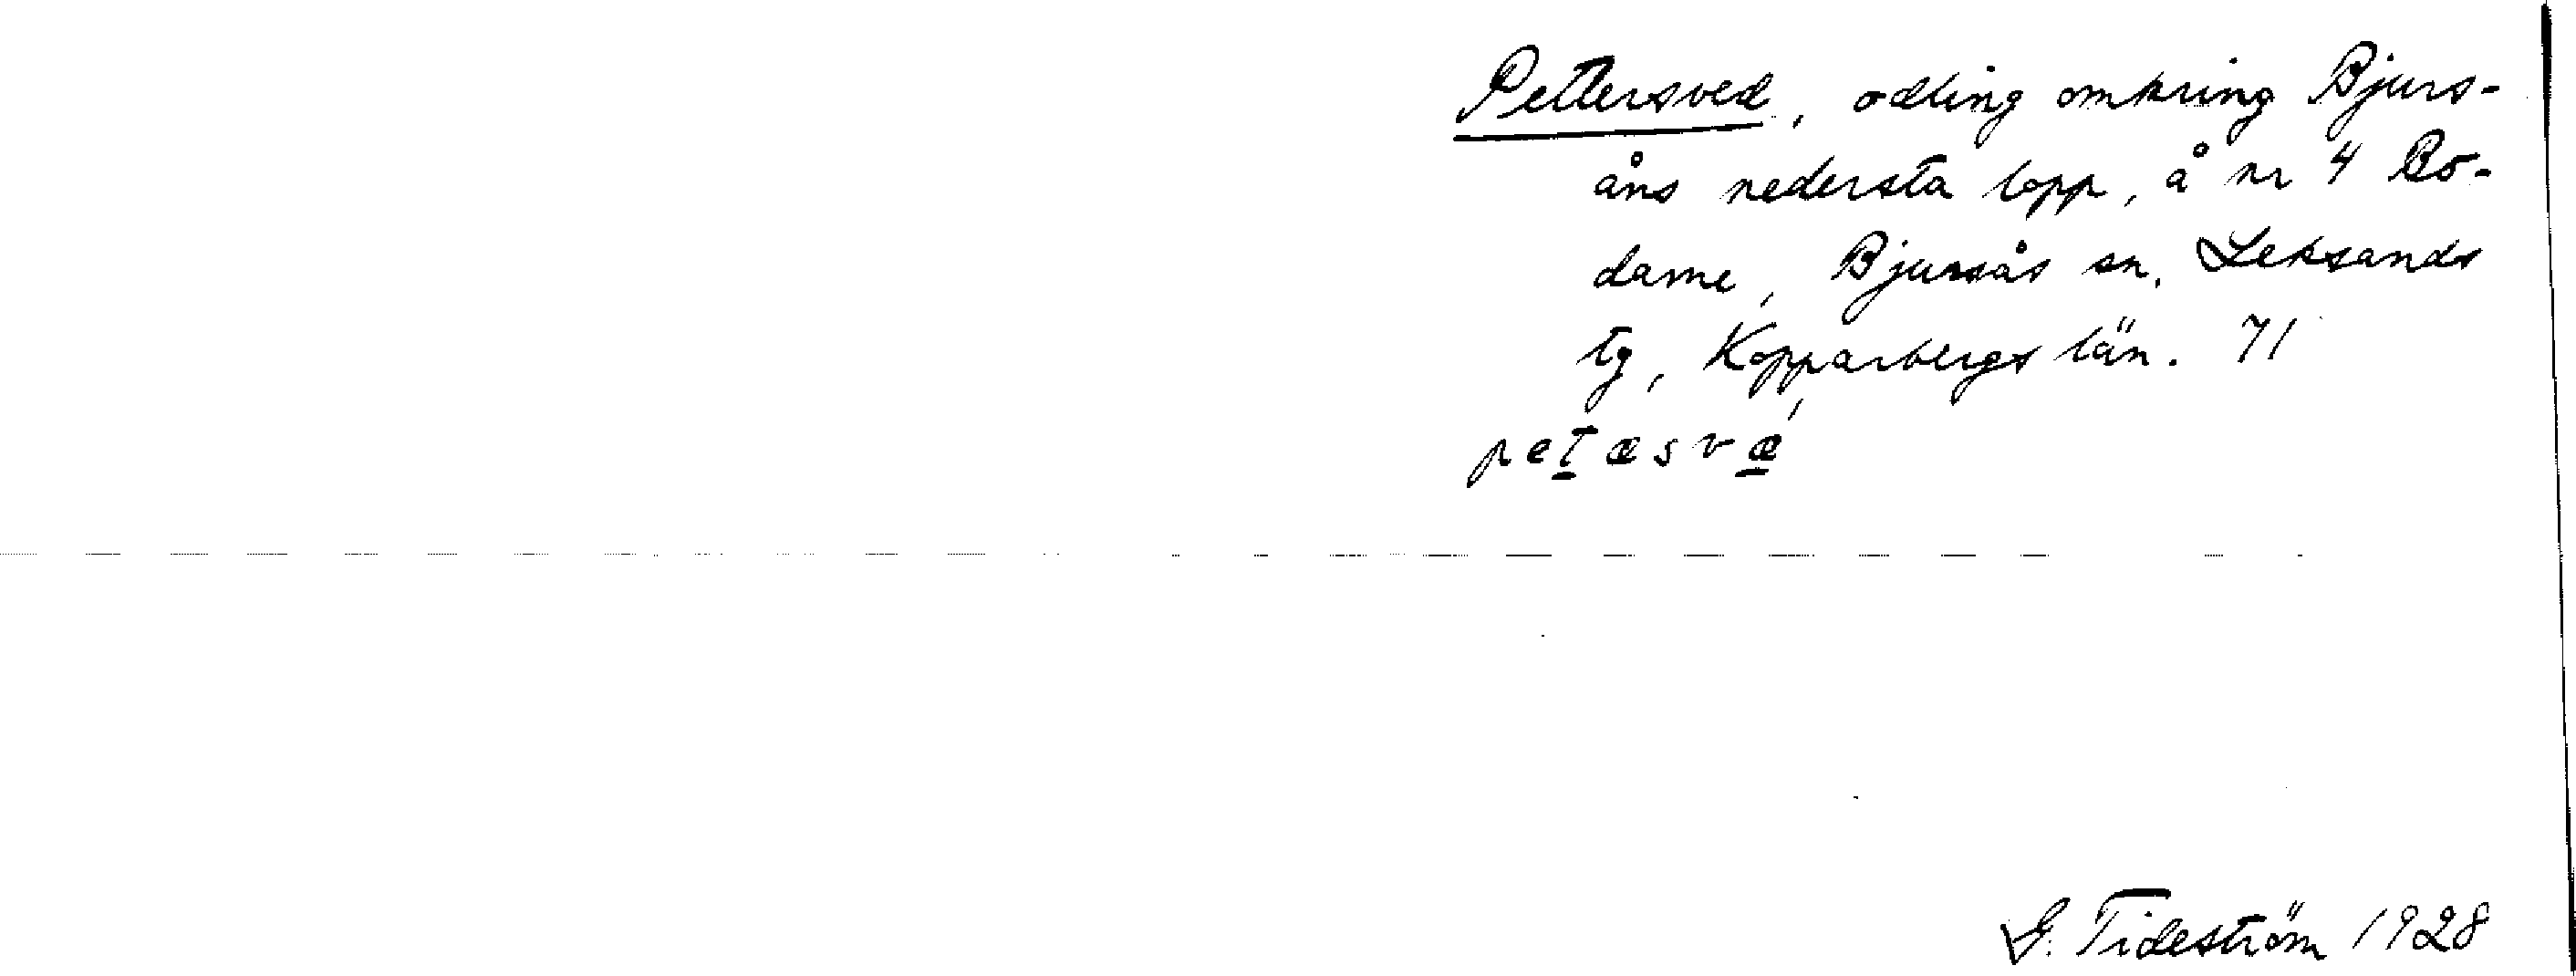 Pettersved, odling omkring Bjurs-
åns nedersta lopp, å nr 4 Bo-
darne, Bjursås sn, Leksands
tg, Kopparbergs län. 71
petæsvæ´
G. Tideström 1928